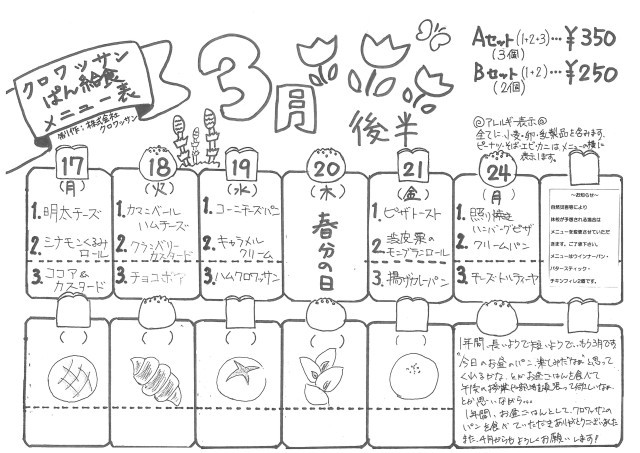 クロワッサン
ぱん給食
メニュー表
制作:株式会社
クロワッサン
3月
後半
Aセット(1+2+3)…¥350
(3個)
Bセット(1+2)…¥250
(2個)
◎アレルギー表示◎
全てに小麦・卵・乳製品を含みます。
ピーナツ・そば・エビ・カニはメニューの横に
表示します。
17
(月)
1.明太チーズ
2.シナモンくるみ
ロール
3.ココア&
カスタード
18
(火)
1.カマンベール
ハムチーズ
2.クランベリー
カスタード
3.チョコボア
19
(水)
1.コーンチーズパン
2.キャラメル
クリーム
3.ハムクロワッサン
20
(木)
春分の日
21
(金)
1.ピザトースト
2.渋皮栗の
モンブランロール
3.揚げカレーパン
24
(月)
1.照り焼き
ハンバーグピザ
2.クリームパン
3.チーズトルティーヤ
〜お知らせ〜
自然災害等により
休校が予想される場合は
メニューを変更させていただ
きます。ご了承下さい。
メニューはウインナーパン・
バタースティック・
チキンフィレ2個です。
( )
( )
( )
( )
( )
1年間、長いようで短いようで、もう3月です
"今日のお昼のパン、楽しみだなぁ"と思って
くれるかな、とか お昼ごはんを食べて
午後の授業や部活も頑張って欲しいなぁ、
とか思いながら…
1年間、お昼ごはんとして、クロワッサンの
パンを食べていただきありがとうございました
また、4月からもよろしくお願いします!